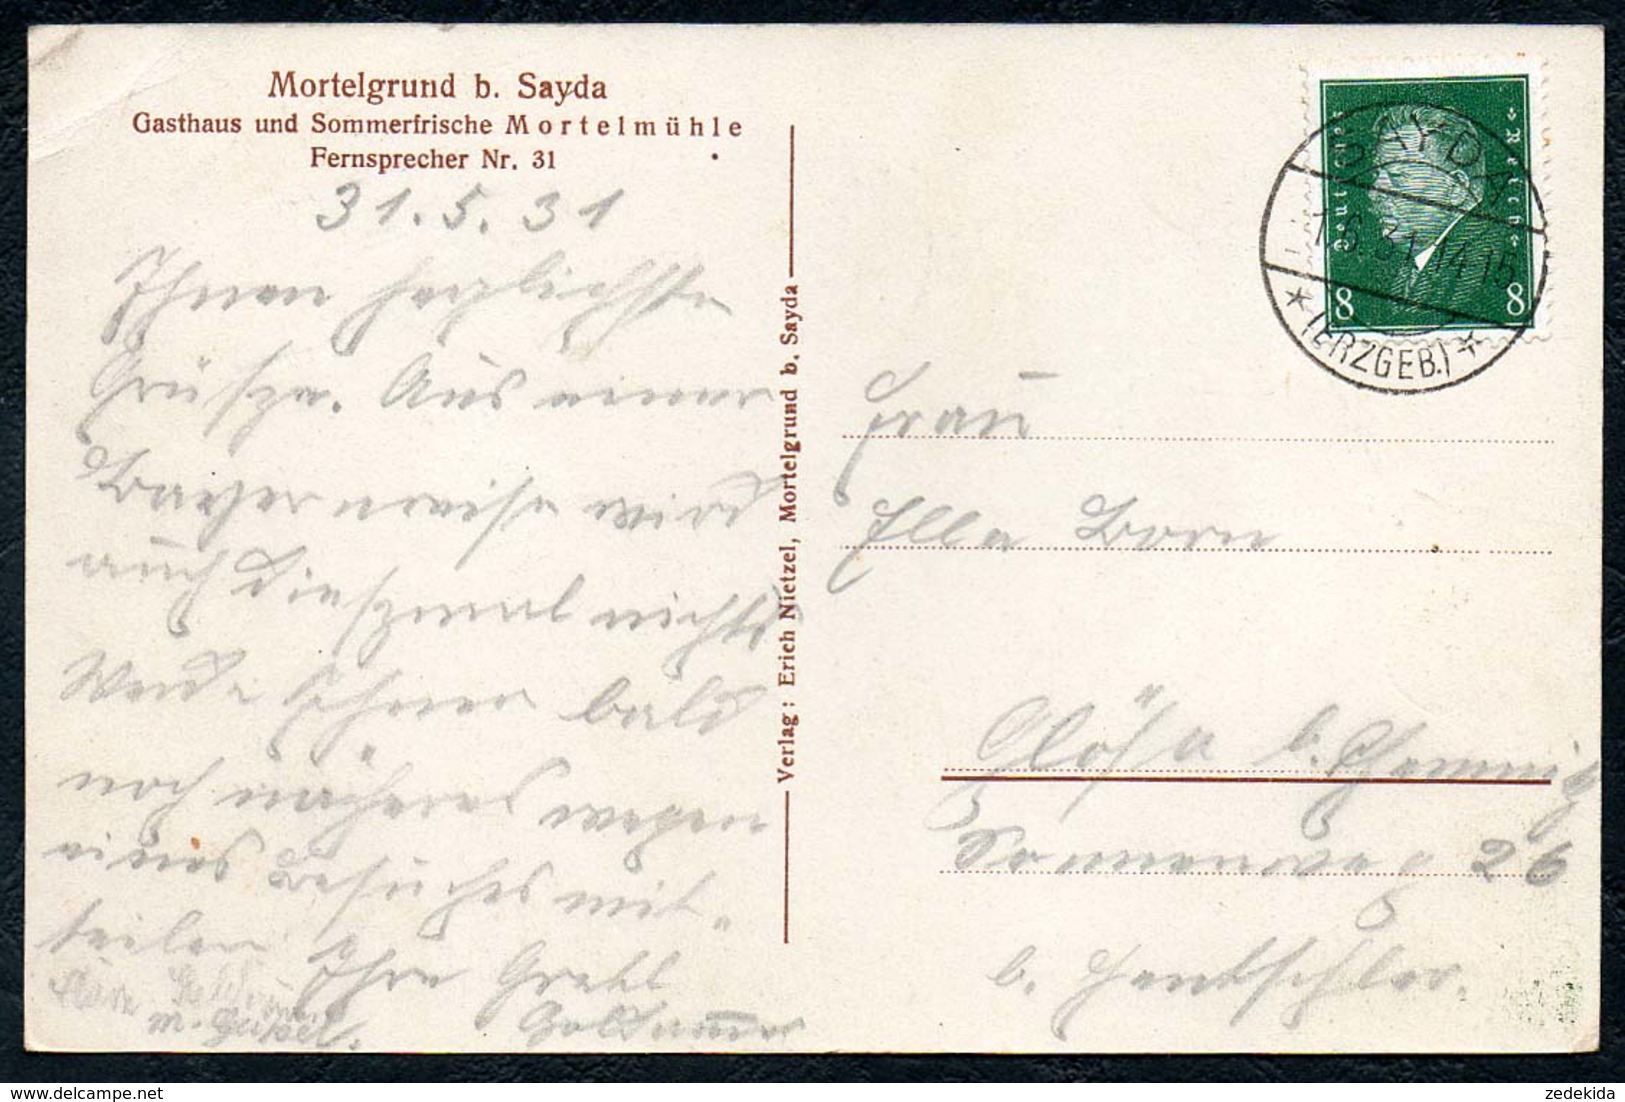 Mortelgrund b. Sayda
Gasthaus und Sommerfrische Mortelmühle
Fernsprecher Nr. 31
31. 5. 31
Ihnen herzlichste
Grüße. Aus einer
Bayernreise wird
auch diesmal nichts
Werde Ihnen bald
noch näheres wegen
eines Besuches mit-
teilen Ihre Gretl
m.
Verlag: Erich Nietzel, Mortelgrund b. Sayda
Deutsches Reich
8 8
SAYDA
1.6.31.14-15
* (ERZGEB.) *
Frau
Ella Born
Glösa b. Chemnitz
Sonnenweg 26
b. Hentschler.
zedekida